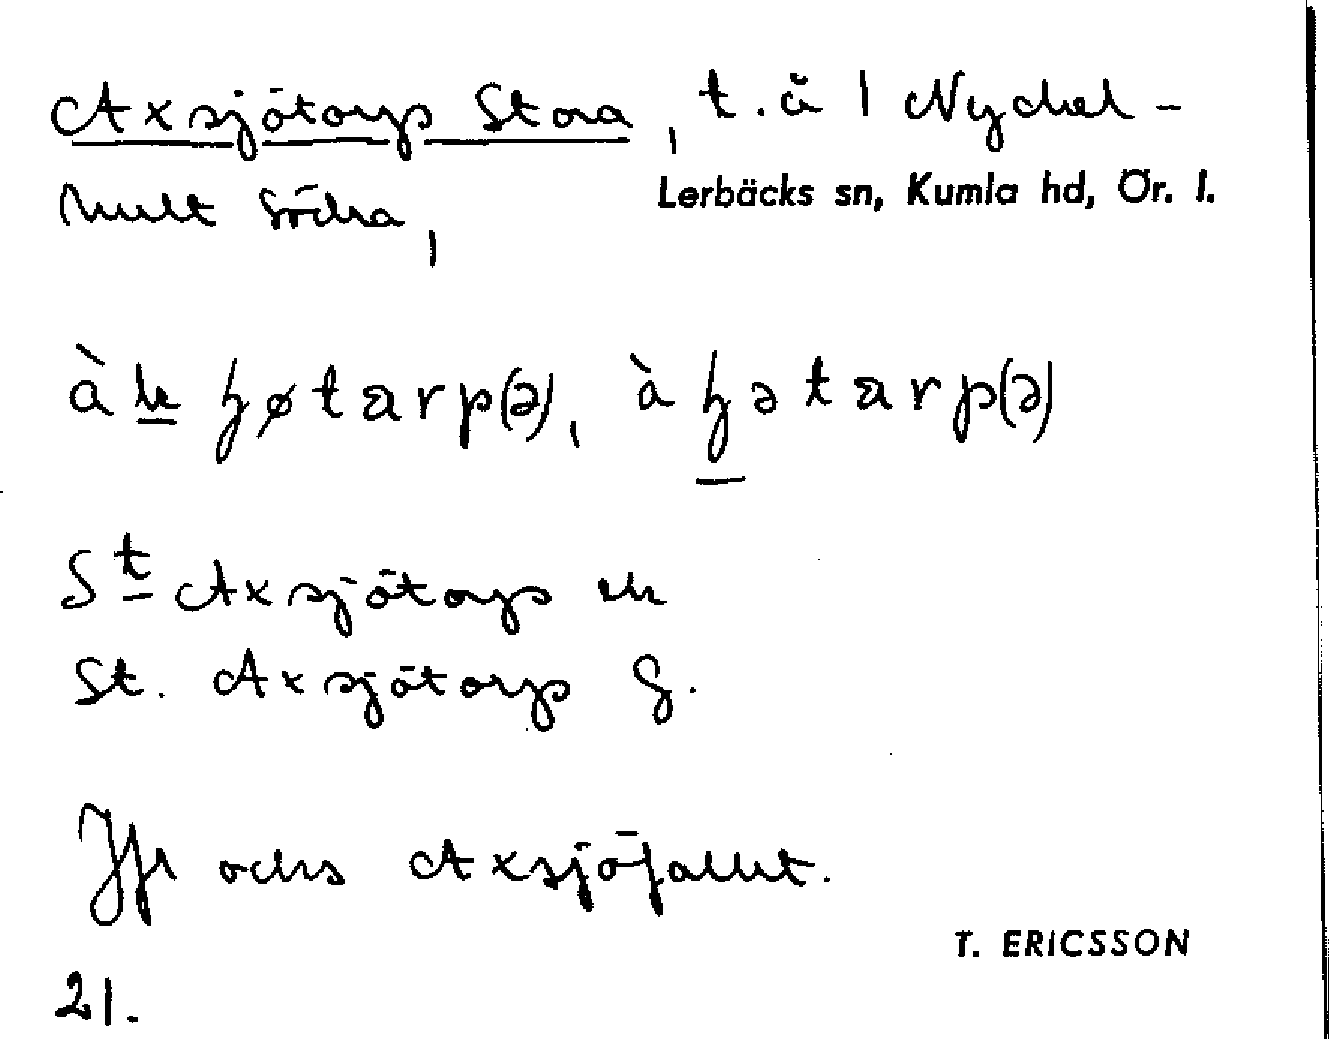 Axsjötorp Stora, t. å 1 Nyckel-
hult Södra,
Lerbäcks sn, Kumla hd, Ör. l.
àk ɧøtarp(ə), àɧətarp(ə)
St Axsjötorp ek
St. Axsjötorp G.
Jfr också Axsjöfallet.
T. ERICSSON
21.